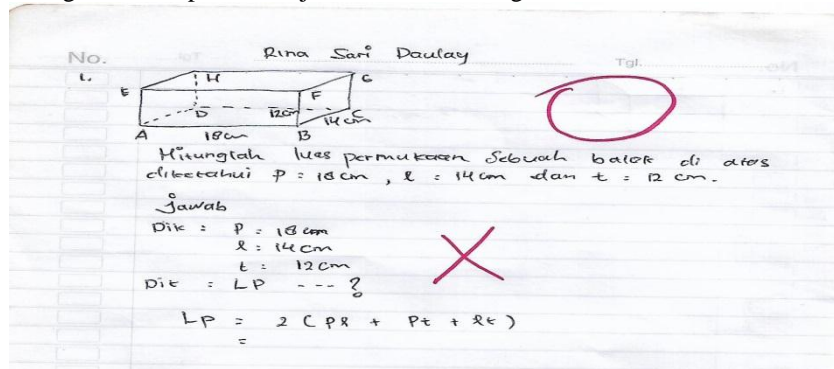 No. Rina Sari Daulay Tgl.
1.
H G
E F
D 12cm C
14 cm
A 18cm B
Hitunglah luas permukaan Sebuah balok di atas
diketahui P = 18 cm, l = 14 cm dan t = 12 cm.
Jawab
Dik : P = 18 cm
l = 14 cm
t = 12 cm
Dit : LP --- ?
LP = 2 ( Pl + Pt + lt )
=